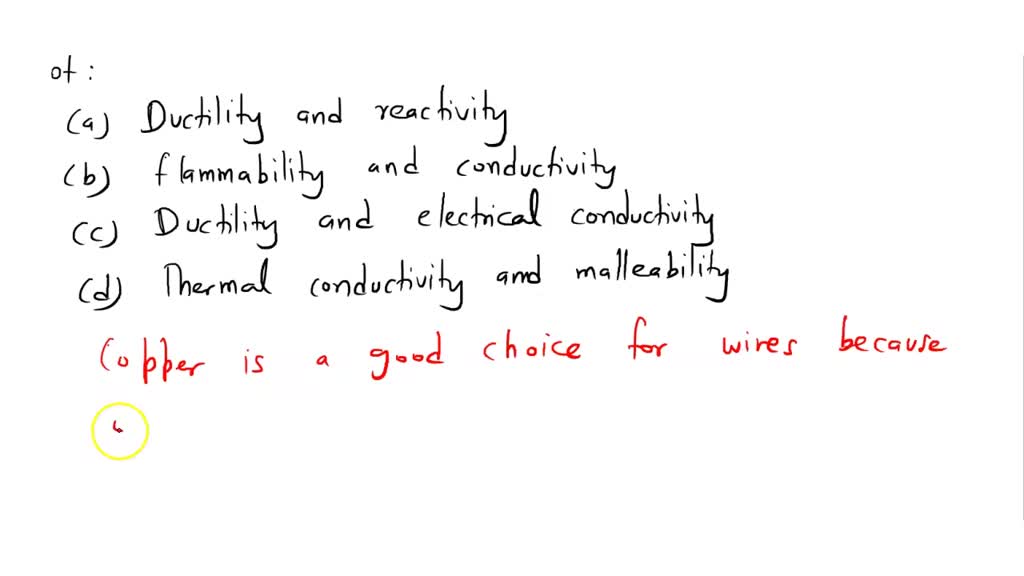 of:
(a) Ductility and reactivity
(b) flammability and conductivity
(c) Ductility and electrical conductivity
(d) Thermal conductivity and malleability
Copper is a good choice for wires because